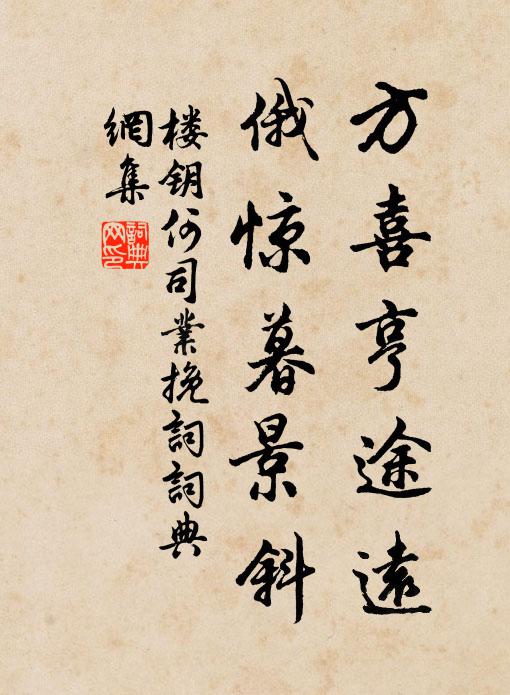 方喜亨途遠
俄惊暮景斜
楼钥何司業挽詞詞典
網集
詞典
网印